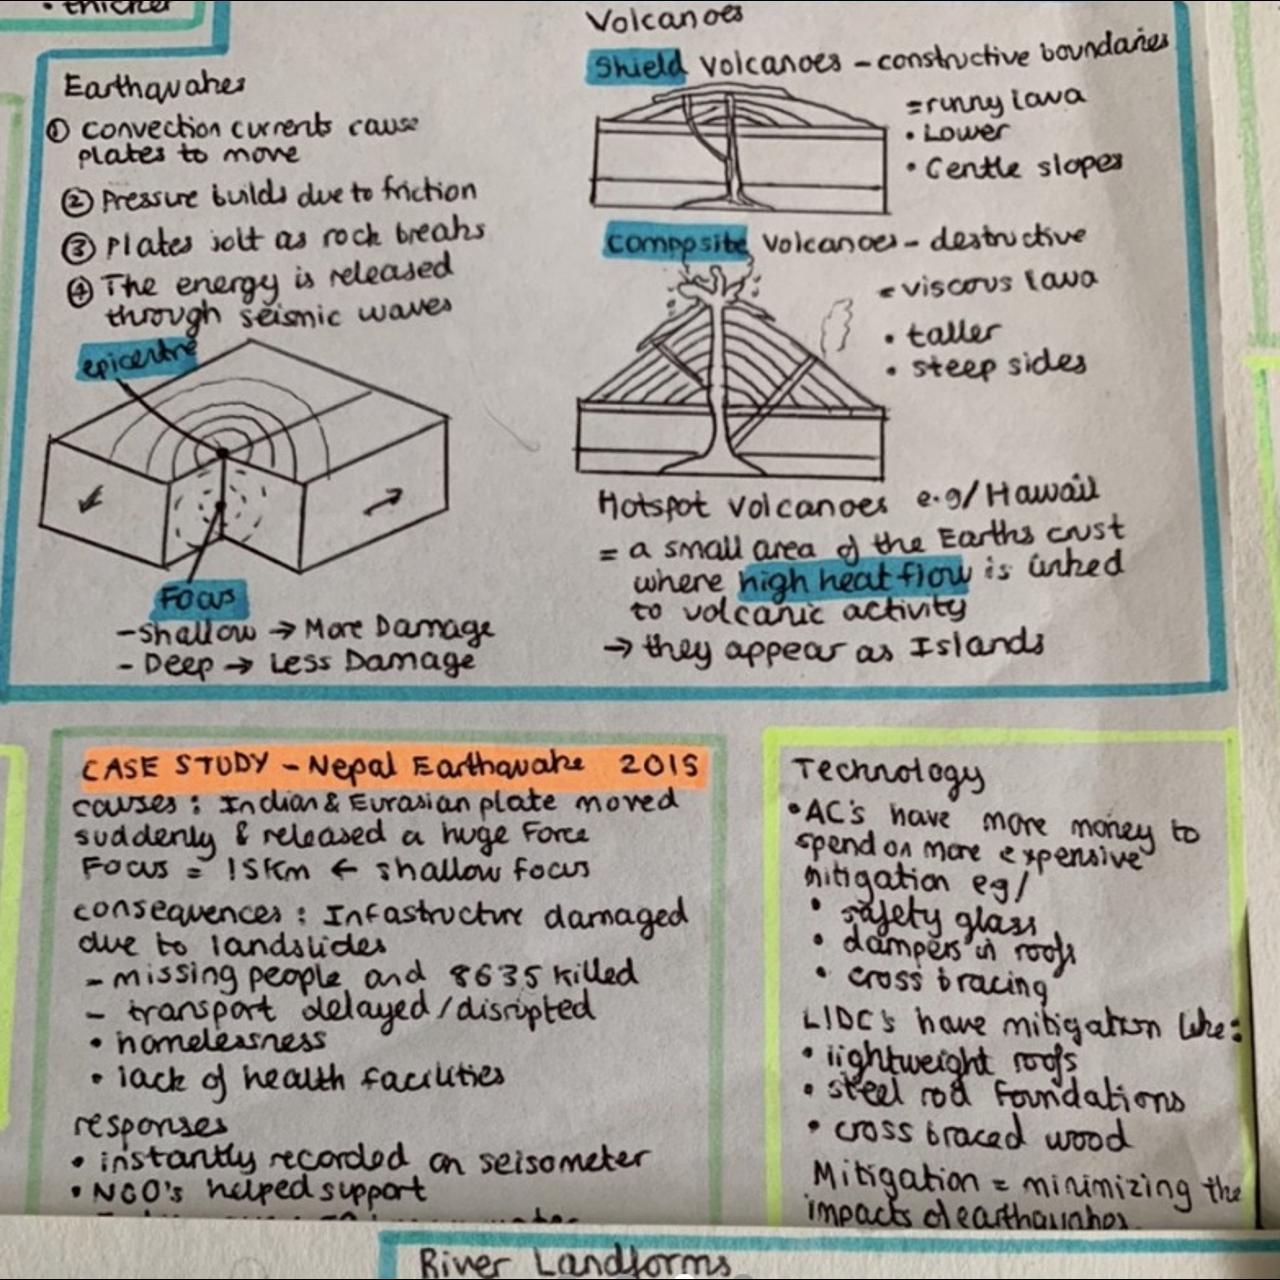 • thicker
Earthquakes
① convection currents cause
plates to move
② Pressure builds due to friction
③ Plates jolt as rock breaks
④ The energy is released
through seismic waves
epicentre
Focus
- shallow → More Damage
- Deep → Less Damage
Volcanoes
Shield volcanoes - constructive boundaries
= runny lava
• Lower
• Gentle slopes
Composite volcanoes - destructive
= viscous lava
• taller
• steep sides
Hotspot volcanoes e.g/Hawaii
= a small area of the Earths crust
where high heat flow is linked
to volcanic activity
→ they appear as Islands
CASE STUDY - Nepal Earthquake 2015
causes: Indian & Eurasian plate moved
suddenly & released a huge force
Focus = 15km ← shallow focus
consequences: Infastructure damaged
due to landslides
- missing people and 8635 killed
- transport delayed/disrupted
• homelessness
• lack of health facilities
responses
• instantly recorded on seisometer
• NGO's helped support
Technology
• AC's have more money to
spend on more expensive
mitigation eg/
• safety glass
• dampers in roofs
• cross bracing
LIDC's have mitigation like:
• lightweight roofs
• steel rod foundations
• cross braced wood
Mitigation = minimizing the
impacts of earthquakes.
River Landforms